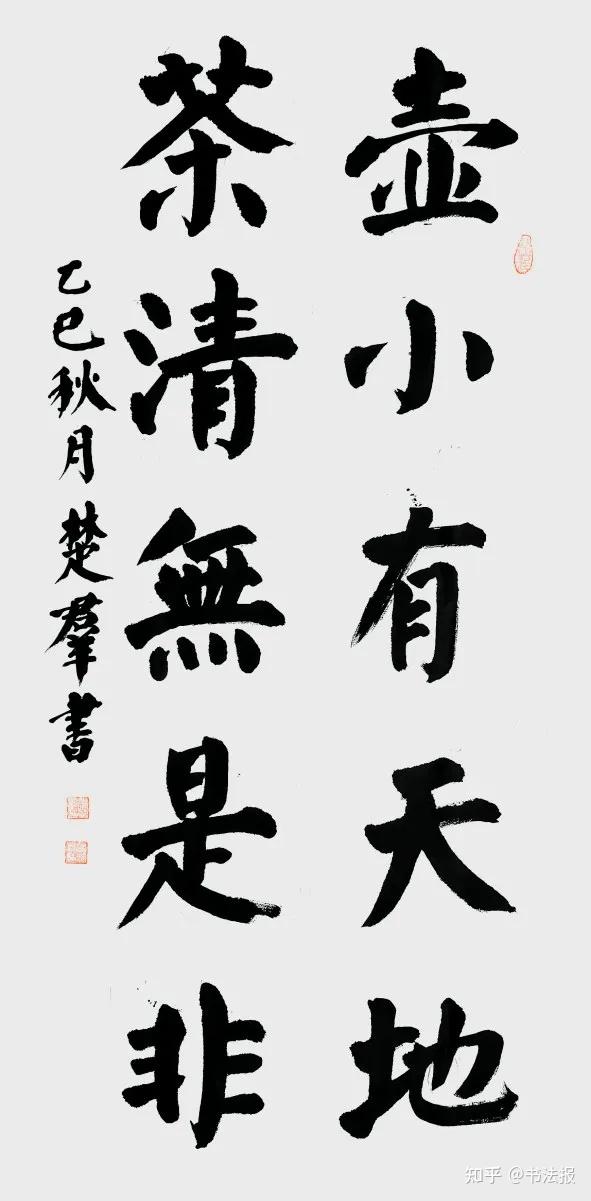 壺小有天地
茶清無是非
乙巳秋月楚羣書
知乎 @书法报